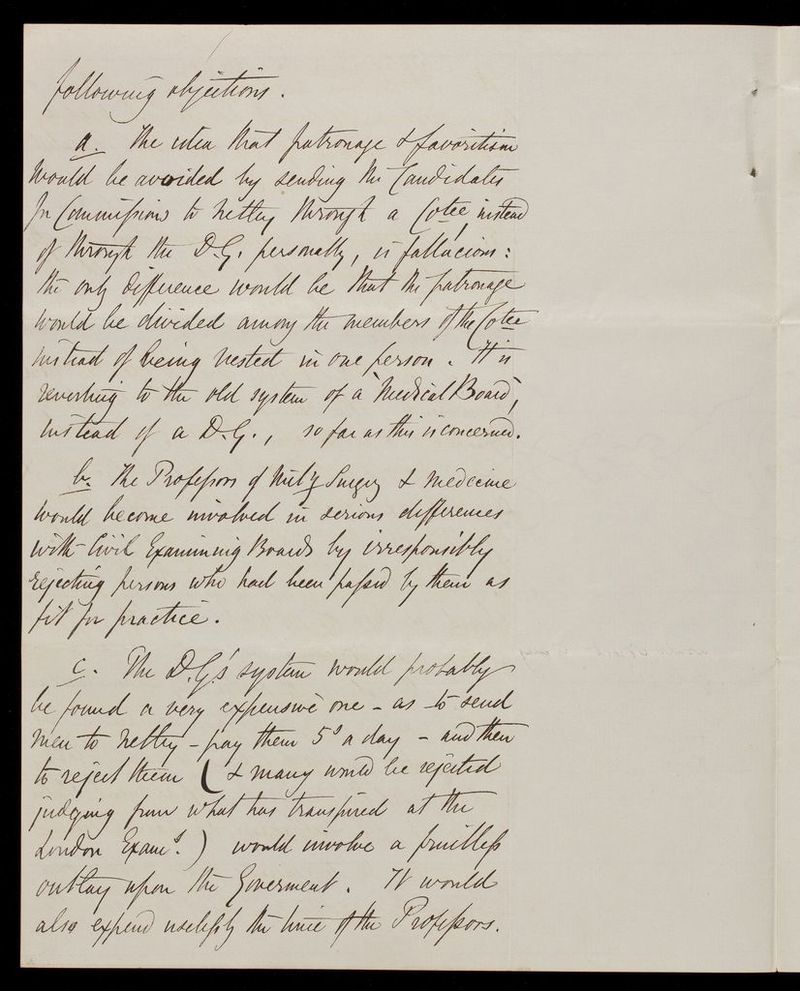 following objections.
a. The idea that patronage & favoritism
would be avoided by sending the Candidates
for Commissions to Netley through a Cotee instead
of through the D.G. personally, is fallacious:
the only difference would be that the patronage
would be divided among the members of the Cotee
instead of being vested in one person. It is
reverting to the old system of a "Medical Board",
instead of a D.G., so far as this is concerned.
b. The Professors of Mily Surgery & Medecine
would become involved in serious differences
with Civil Examining Boards by irresponsibly
rejecting persons who had been passed by them as
fit for practice.
c. The D.G.'s system would probably
be found a very expensive one - as to send
men to Netley - pay them 5s a day - and then
to reject them (& many would be rejected
judging from what has transpired at the
London Exams.) would involve a fruitless
outlay upon the Goverment. It would
also expend uselessly the time of the Professors.